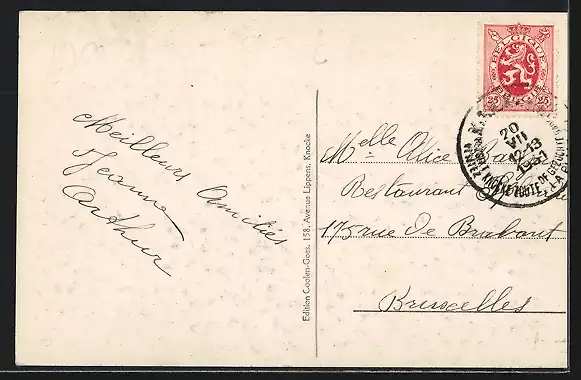 Meilleurs Amitiés
Jeanne
Arthur
Edition Coolen-Goes, 158, Avenue Lippens, Knocke
BELGIQUE
BELGIË
25 25
20
VII
12-13
1931
Melle Alice
Restaurant
175 rue de Brabant
Bruxelles